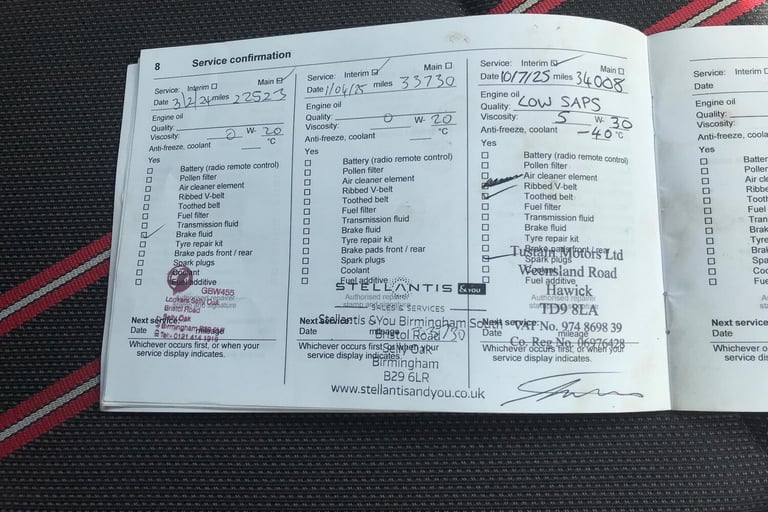 8 Service confirmation
Service: Interim Main
Date 3/2/24 miles 22523
Engine oil
Quality:
Viscosity: 0 W- 20
Anti-freeze, coolant °C
Yes
Battery (radio remote control)
Pollen filter
Air cleaner element
Ribbed V-belt
Toothed belt
Fuel filter
Transmission fluid
Brake fluid
Tyre repair kit
Brake pads front / rear
Spark plugs
Coolant
Fuel additive
GBW455
Selly Oak
Bristol Road
Birmingham
Next service:
Date mileage
Whichever occurs first, or when your
service display indicates.
Service: Interim Main
Date 1/04/25 miles 33730
Engine oil
Quality:
Viscosity: 0 W- 20
Anti-freeze, coolant °C
Yes
Battery (radio remote control)
Pollen filter
Air cleaner element
Ribbed V-belt
Toothed belt
Fuel filter
Transmission fluid
Brake fluid
Tyre repair kit
Brake pads front / rear
Spark plugs
Coolant
Fuel additive
STELLANTIS &YOU
Authorised repairer
SALES & SERVICES
Stellantis &You Birmingham South
Next service:
Date mileage
Bristol Road
Selly Oak
Birmingham
B29 6LR
www.stellantisandyou.co.uk
Whichever occurs first, or when your
service display indicates.
Service: Interim Main
Date 10/7/25 miles 34008
Engine oil
Quality: LOW SAPS
Viscosity: 5 W- 30
Anti-freeze, coolant -40 °C
Yes
Battery (radio remote control)
Pollen filter
Air cleaner element
Ribbed V-belt
Toothed belt
Fuel filter
Transmission fluid
Brake fluid
Tyre repair kit
Brake pads front / rear
Spark plugs
Coolant
Fuel additive
Tustain Motors Ltd
Weensland Road
Hawick
TD9 8LA
VAT No. 974 8698 39
Co. Reg No. 06976428
Authorised repairer
Next service:
Date mileage
Whichever occurs first, or when your
service display indicates.
Service: Interim
Date
Engine oil
Quality:
Viscosity:
Anti-freeze, coolant
Yes
Battery
Pollen
Air cle
Ribbed
Tooth
Fuel
Tran
Bra
Tyr
Bra
Spa
Co
Fu
Next service:
Date
Whichever occurs
service di